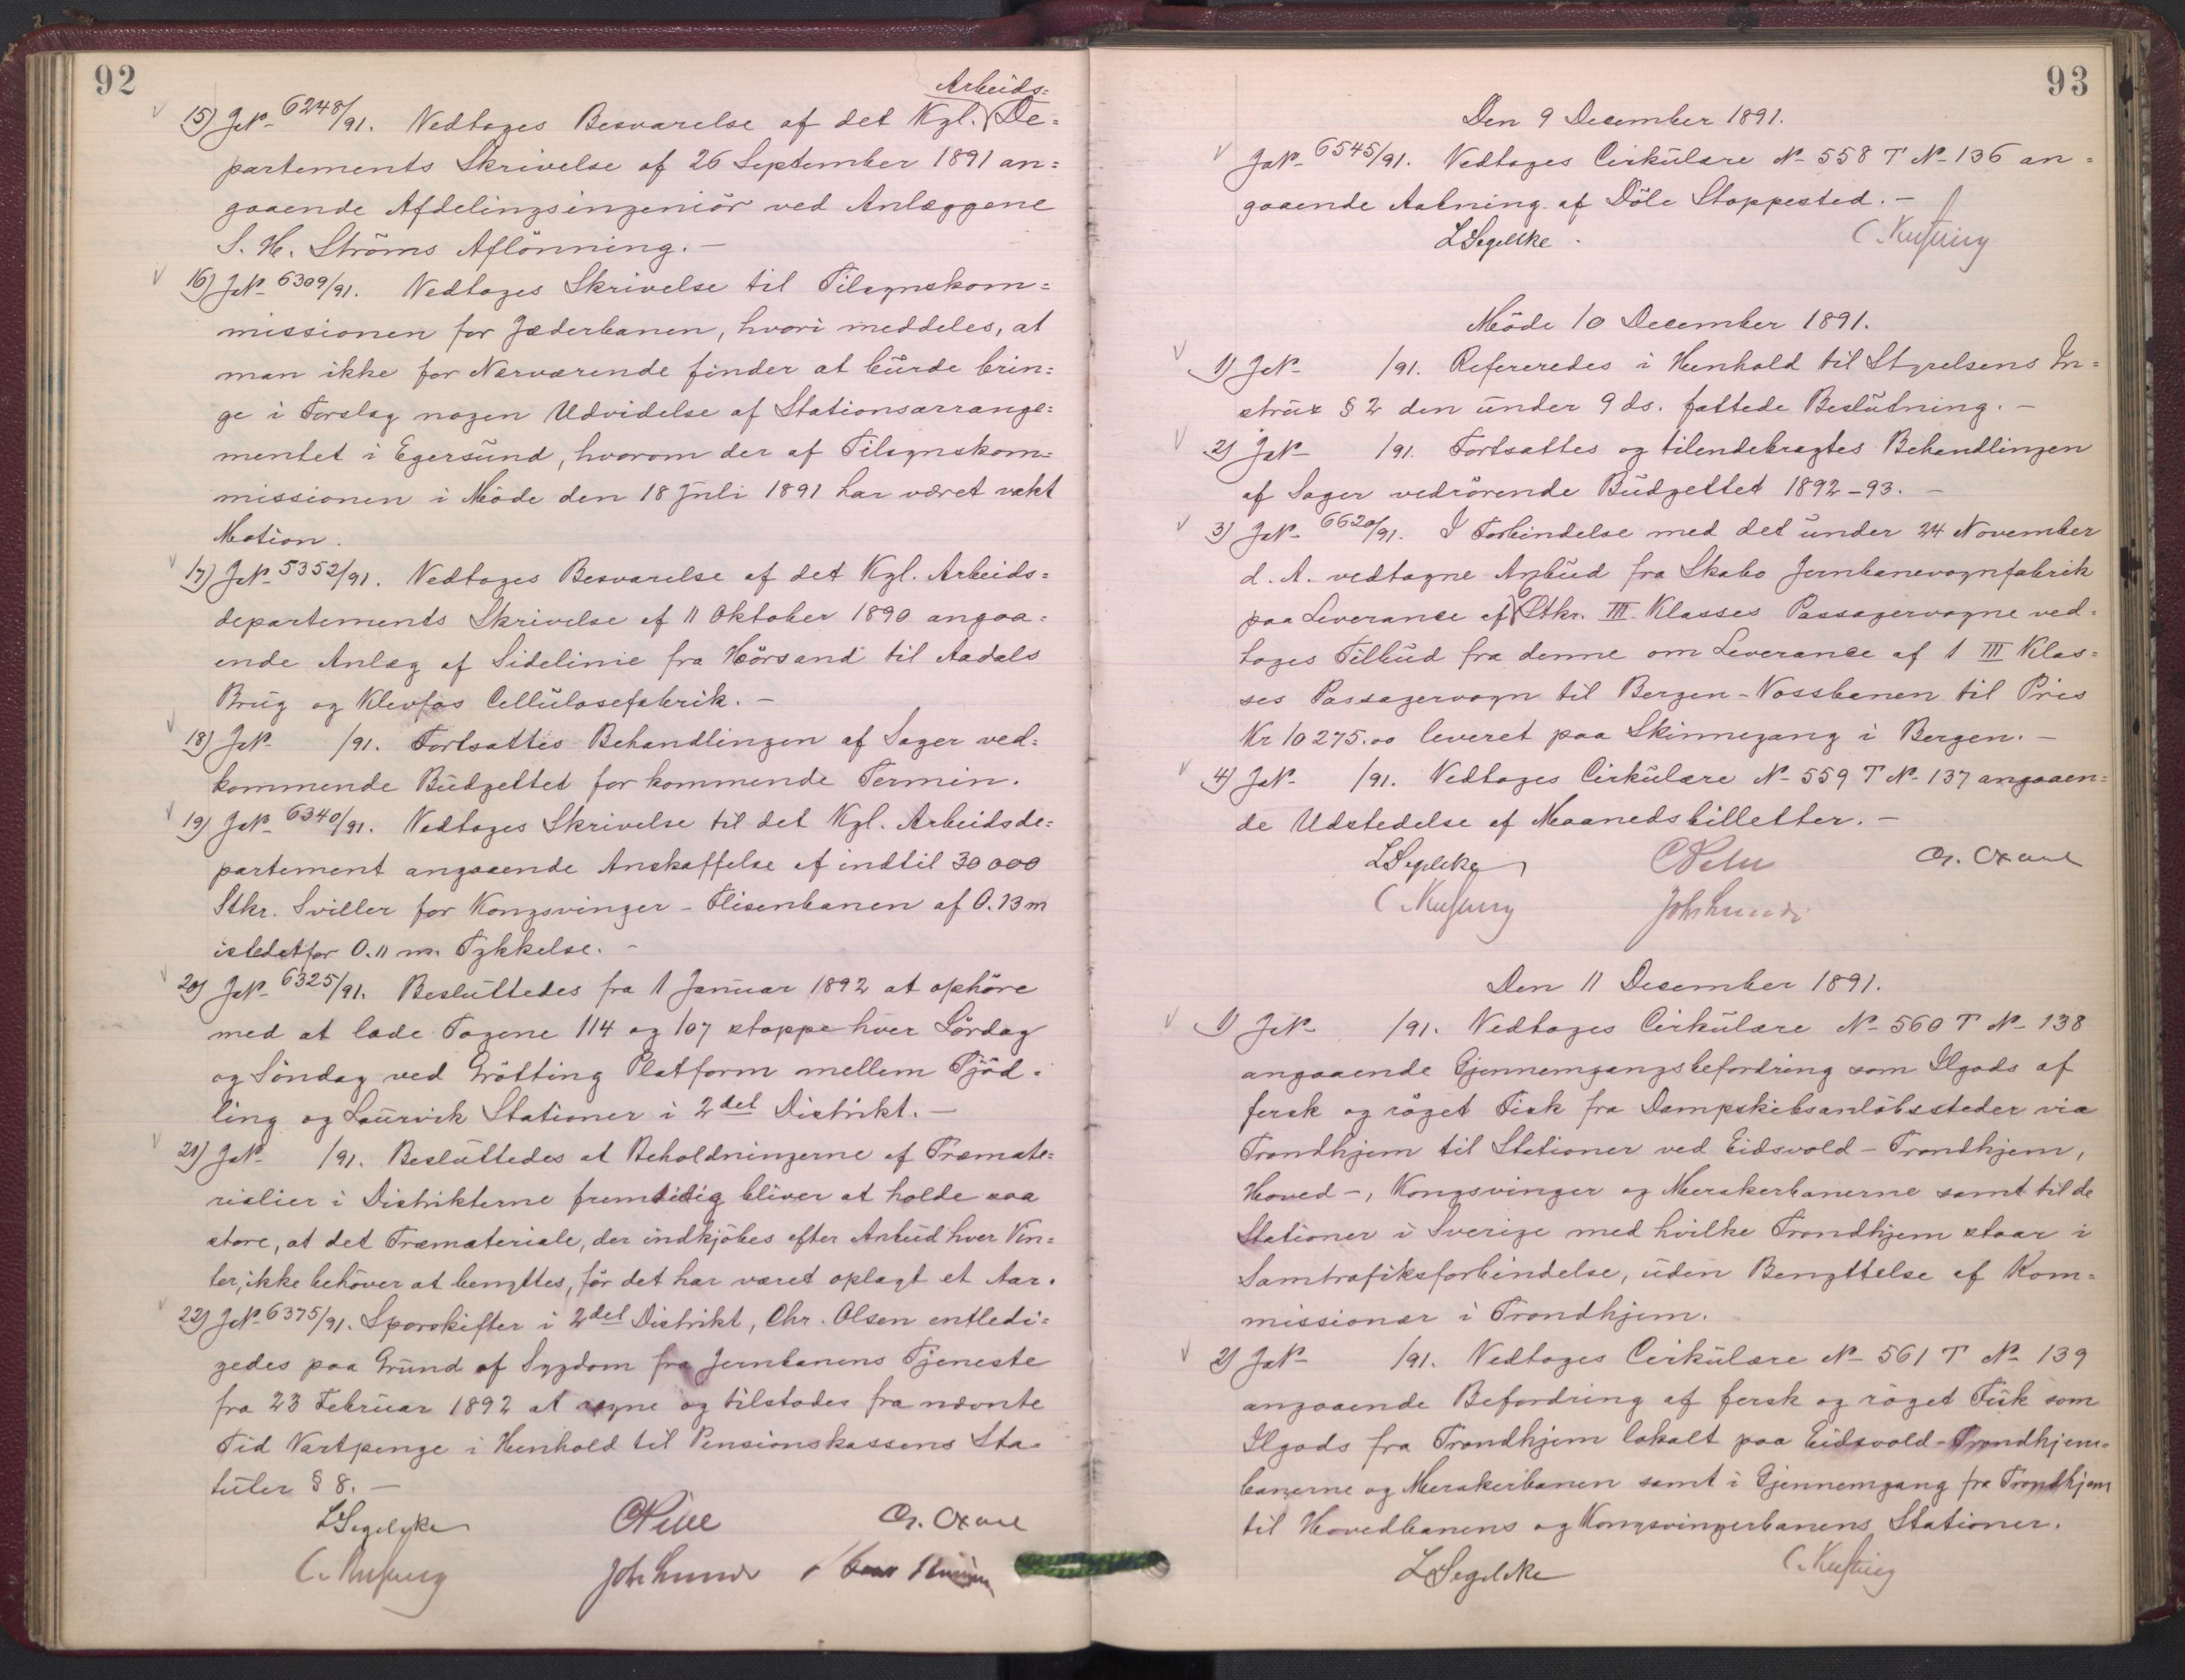 92
Arbeids=
15) JN- 6248/91. Vedtoges Besvarelse af det Kgl. De=
partements Skrivelse af 26 September 1891 an=
gaaende Afdelingsingeniör ved Anlæggene
S. H. Ströms Aflönning. -
16) JN- 6309/91. Vedtoges Skrivelse til Tilsynskom=
missionen for Jæderbanen, hvori meddeles, at
man ikke for Nærværende finder at burde brin=
ge i Forslag nogen Udvidelse af Stationsarrange=
mentet i Egersund, hvorom der af Tilsynskom=
missionen i Möde den 18 Juli 1891 har været vakt
Motion.
17) JN- 5352/91. Vedtoges Besvarelse af det Kgl. Arbeids=
departements Skrivelse af 11 Oktober 1890 angaa=
ende Anlæg af Sidelinie fra Hörsand til Aadals
Brug og Klevfos Cellulosefabrik. -
18) JN- /91. Fortsattes Behandlingen af Sager ved=
kommende Budgettet for kommende Termin.
19) JN- 6340/91. Vedtoges Skrivelse til det Kgl. Arbeidsde=
partement angaaende Anskaffelse af indtil 30000
Stkr. Sviller for Kongsvinger - Flisenbanen af 0.13 m
istedetfor 0.11 m. Tykkelse. -
20) JN- 6325/91. Besluttedes fra 1 Januar 1892 at ophöre
med at lade Togene 114 og 107 stoppe hver Lördag
og Söndag ved Grötting Platform mellem Tjöd=
ling og Laurvik Stationer i 2det Distrikt. -
21) JN- /91. Besluttedes at Beholdningerne af Træmate=
rialier i Distrikterne fremtidig bliver at holde saa
store, at det Træmateriale, der indkjöbes efter Anbud hver Vin=
ter, ikke behöver at benyttes, för det har været oplagt et Aar.
22) JN- 6375/91. Sporskifter i 2det Distrikt, Chr. Olsen entledi=
gedes paa Grund af Sygdom fra Jernbanens Tjeneste
fra 23 Februar 1892 at regne og tilstodes fra nævnte
Tid Vartpenge i Henhold til Pensionskassens Sta=
tuter § 8. -
LSegelcke CPihl
Joh Lunde
93
Den 9 December 1891.
JN- 6545/91. Vedtoges Cirkulære N- 558 T N- 136 an=
gaaende Aabning af Döle Stoppested. -
LSegelcke.
Möde 10 December 1891.
1) JN- /91. Refereredes i Henhold til Styrelsens In=
strux § 2 den under 9 ds. fattede Beslutning. -
2) JN- /91. Fortsattes og tilendebragtes Behandlingen
af Sager vedrörende Budgettet 1892-93. -
3) JN- 6620/91. I Forbindelse med det under 24 November
d. A. vedtagne Anbud fra Skabo Jernbanevognfabrik
paa Leverance af 6 Stkr. III Klasses Passagervogne ved=
toges Tilbud fra denne om Leverance af 1 III Klas=
ses Passagervogn til Bergen-Vossbanen til Pris
Kr 10275.00 leveret paa Skinnegang i Bergen. -
4) JN- /91. Vedtoges Cirkulære N- 559 T N- 137 angaaen=
de Udstedelse af Maanedsbilletter. -
LSegelcke CPihl
Joh Lunde
Den 11 December 1891.
1) JN- /91. Vedtoges Cirkulære N- 560 T N- 138
angaaende Gjennemgangsbefordring som Ilgods af
fersk og röget Fisk fra Dampskibsanlöbssteder via
Trondhjem til Stationer ved Eidsvold - Trondhjem,
Hoved -, Kongsvinger og Merakerbanerne samt til de
Stationer i Sverige med hvilke Trondhjem staar i
Samtrafiksforbindelse, uden Benyttelse af Kom=
missionær i Trondhjem.
2) JN- /91. Vedtoges Cirkulære N- 561 T N- 139
angaaende Befordring af fersk og röget Fisk som
Ilgods fra Trondhjem lokalt paa Eidsvold-Trondhjem=
banerne og Merakerbanen samt i Gjennemgang fra Trondhjem
til Hovedbanens og Kongsvingerbanens Stationer.
LSegelcke